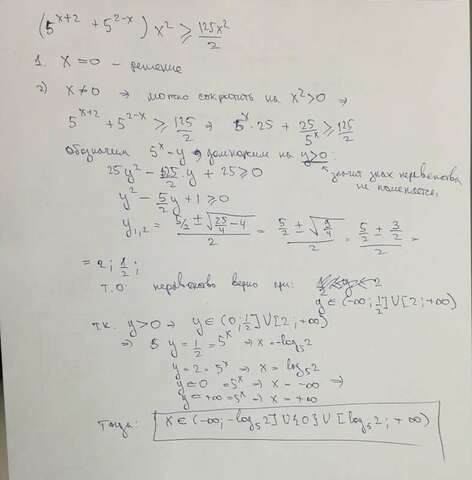 (5^{x+2} + 5^{2-x}) x² ≥ 125x²/2
1. x = 0 – решение
2) x ≠ 0 ⇒ можно сократить на x² > 0 ⇒
5^{x+2} + 5^{2-x} ≥ 125/2 ⇒ 5^x · 25 + 25/5^x ≥ 125/2
обозначим 5^x – y и домножим на y>0:
значит знак неравенства не поменяется,
25y² – 125/2 y + 25 ≥ 0
y² – 5/2 y + 1 ≥ 0
y_{1,2} = (5/2 ± √(25/4 – 4))/2 = (5/2 ± √(9/4))/2 = (5/2 ± 3/2)/2 =
= 2; 1/2;
т.о. неравенство верно при:
y ∈ (-∞; 1/2] ∪ [2; +∞)
т.к. y > 0 ⇒ y ∈ (0; 1/2] ∪ [2; +∞)
⇒ y = 1/2 = 5^x ⇒ x = -log₅2
y = 2 = 5^x ⇒ x = log₅2
y = 0 = 5^x ⇒ x = -∞ ⇒
y = +∞ = 5^x ⇒ x = +∞
Тогда: x ∈ (-∞; -log₅2] ∪ {0} ∪ [log₅2; +∞)